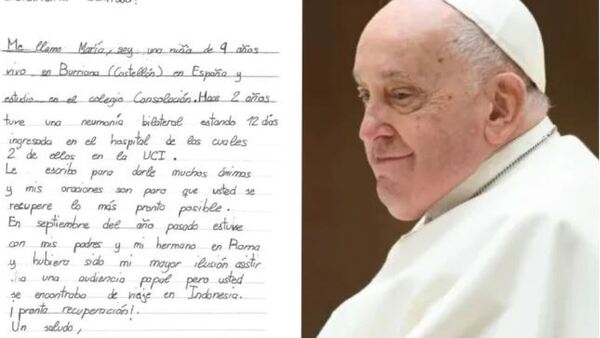 Me llamo María, soy una niña de 9 años
vivo en Burriana (Castellón) en España y
estudio en el colegio Consolación. Hace 2 años
tuve una neumonía bilateral estando 12 días
ingresada en el hospital de los cuales
2 de ellos en la UCI.
Le escribo para darle muchos ánimos
y mis oraciones son para que usted se
recupere lo más pronto posible.
En septiembre del año pasado estuve
con mis padres y mi hermano en Roma
y hubiera sido mi mayor ilusión asistir
a una audiencia papal pero usted
se encontraba de viaje en Indonesia.
¡pronta recuperación!.
Un saludo,